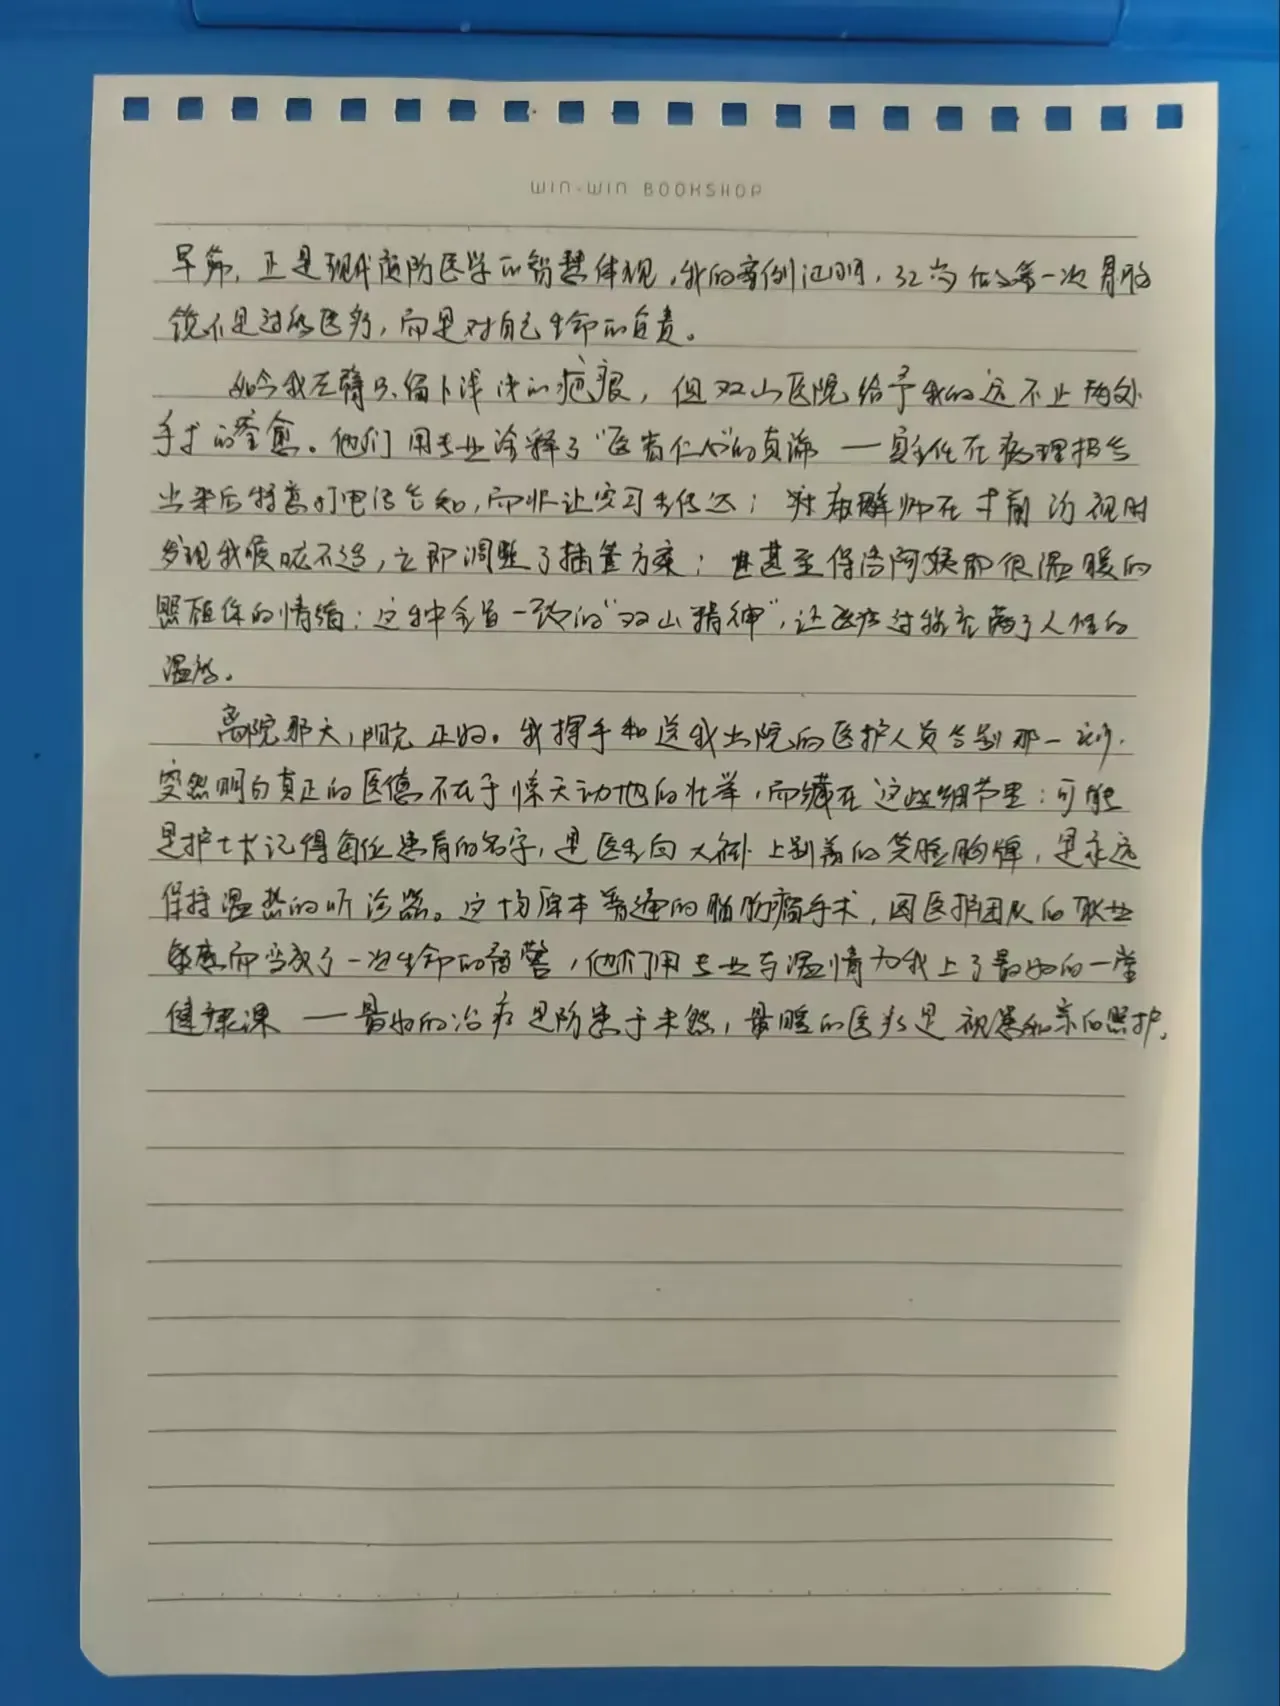 WIN-WIN BOOKSHOP
早筛，正是现代预防医学的智慧体现，我的案例证明，32岁做第一次胃肠
镜不是过度医疗，而是对自己生命的负责。
如今我左臂只留下浅浅的疤痕，但双山医院给予我的远不止两处
手术的痊愈。他们用专业诠释了“医者仁心”的真谛——主任在病理报告
出来后特意打电话告知，而非让实习生传达；麻醉师在术前访视时
发现我喉咙不适，立即调整了插管方案；甚至保洁阿姨都很温暖的
照顾你的情绪；这种全员一致的“双山精神”，让医疗过程充满了人性的
温度。
离院那天，阳光正好。我挥手和送我出院的医护人员告别那一刻，
突然明白真正的医德不在于惊天动地的壮举，而藏在这些细节里：可能
是护士长记得每位患者的名字，是医生白大褂上别着的笑脸胸牌，是永远
保持温热的听诊器。这场原本普通的脂肪瘤手术，因医护团队的职业
敏感而变成了一次生命的预警，他们用专业与温情为我上了最好的一堂
健康课——最好的治疗是防患于未然，最暖的医疗是视患如亲的照护。